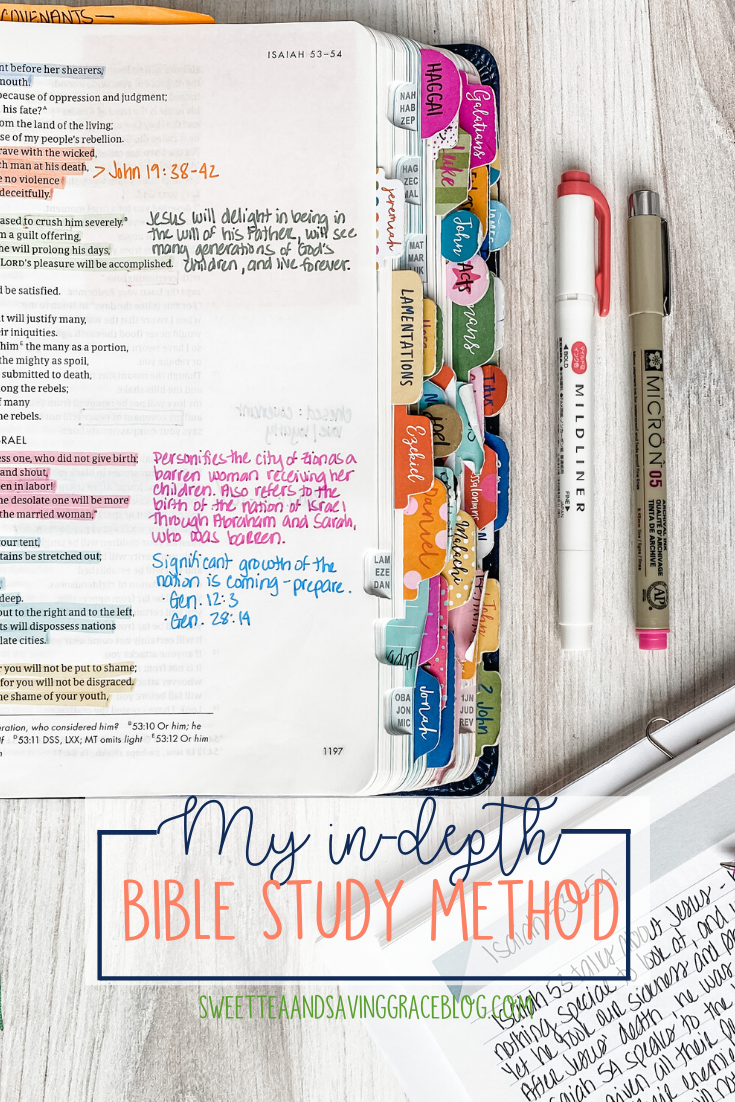 COVENANTS—
ISAIAH 53–54
nt before her shearers,
mouth.
because of oppression and judgment;
his fate?ᴬ
om the land of the living;
se of my people's rebellion.
rave with the wicked,
ch man at his death,
e no violence
deceitfully.
> John 19:38-42
ased to crush him severely.ᴮ
m a guilt offering,
he will prolong his days,
LORD's pleasure will be accomplished.
Jesus will delight in being in
the will of his Father, will see
many generations of God's
children, and live forever.
d be satisfied.
t will justify many,
eir iniquities.
himᴱ the many as a portion,
the mighty as spoil,
submitted to death,
ong the rebels;
f many
he rebels.
RAEL
ess one, who did not give birth;
and shout,
en in labor!
he desolate one will be more
the married woman,"
Personifies the city of zion as a
barren woman receiving her
children. Also refers to the
birth of the nation of Israel
through Abraham and Sarah,
who was barren.
our tent,
tains be stretched out;
deep.
out to the right and to the left,
ts will dispossess nations
late cities.
Significant growth of the
nation is coming - prepare.
· Gen. 12:3
· Gen. 28:14
r you will not be put to shame;
for you will not be disgraced.
he shame of your youth,
eration, who considered him? ᴮ53:10 Or him; he
lf ᴰ53:11 DSS, LXX; MT omits light ᴱ53:12 Or him
1197
NAH
HAB
ZEP
HAG
ZEC
MAL
MAT
MAR
LUK
LAM
EZE
DAN
OBA
JON
MIC
1JN
JUD
REV
HAGGAI
Galatians
Luke
jeremiah
James
John
Acts
mans
LAMENTATIONS
Titus
Joel
Ezekiel
ssalonians
Daniel
Malachi
John
Jonah
2 John
BOLD
MILDLINER
FINE
MICRON 05
ARCHIVAL INK
QUALITÉ D'ARCHIVAGE
TINTA DE ARCHIVO
AP
My in-depth
BIBLE STUDY METHOD
SWEETTEAANDSAVINGGRACEBLOG.COM
Isaiah 53-54
Isaiah 53 talks about Jesus -
nothing special to look at, and
Yet he took our sickness and
After Jesus' death, he was
Isaiah 54 speaks to the
given all their
enemie